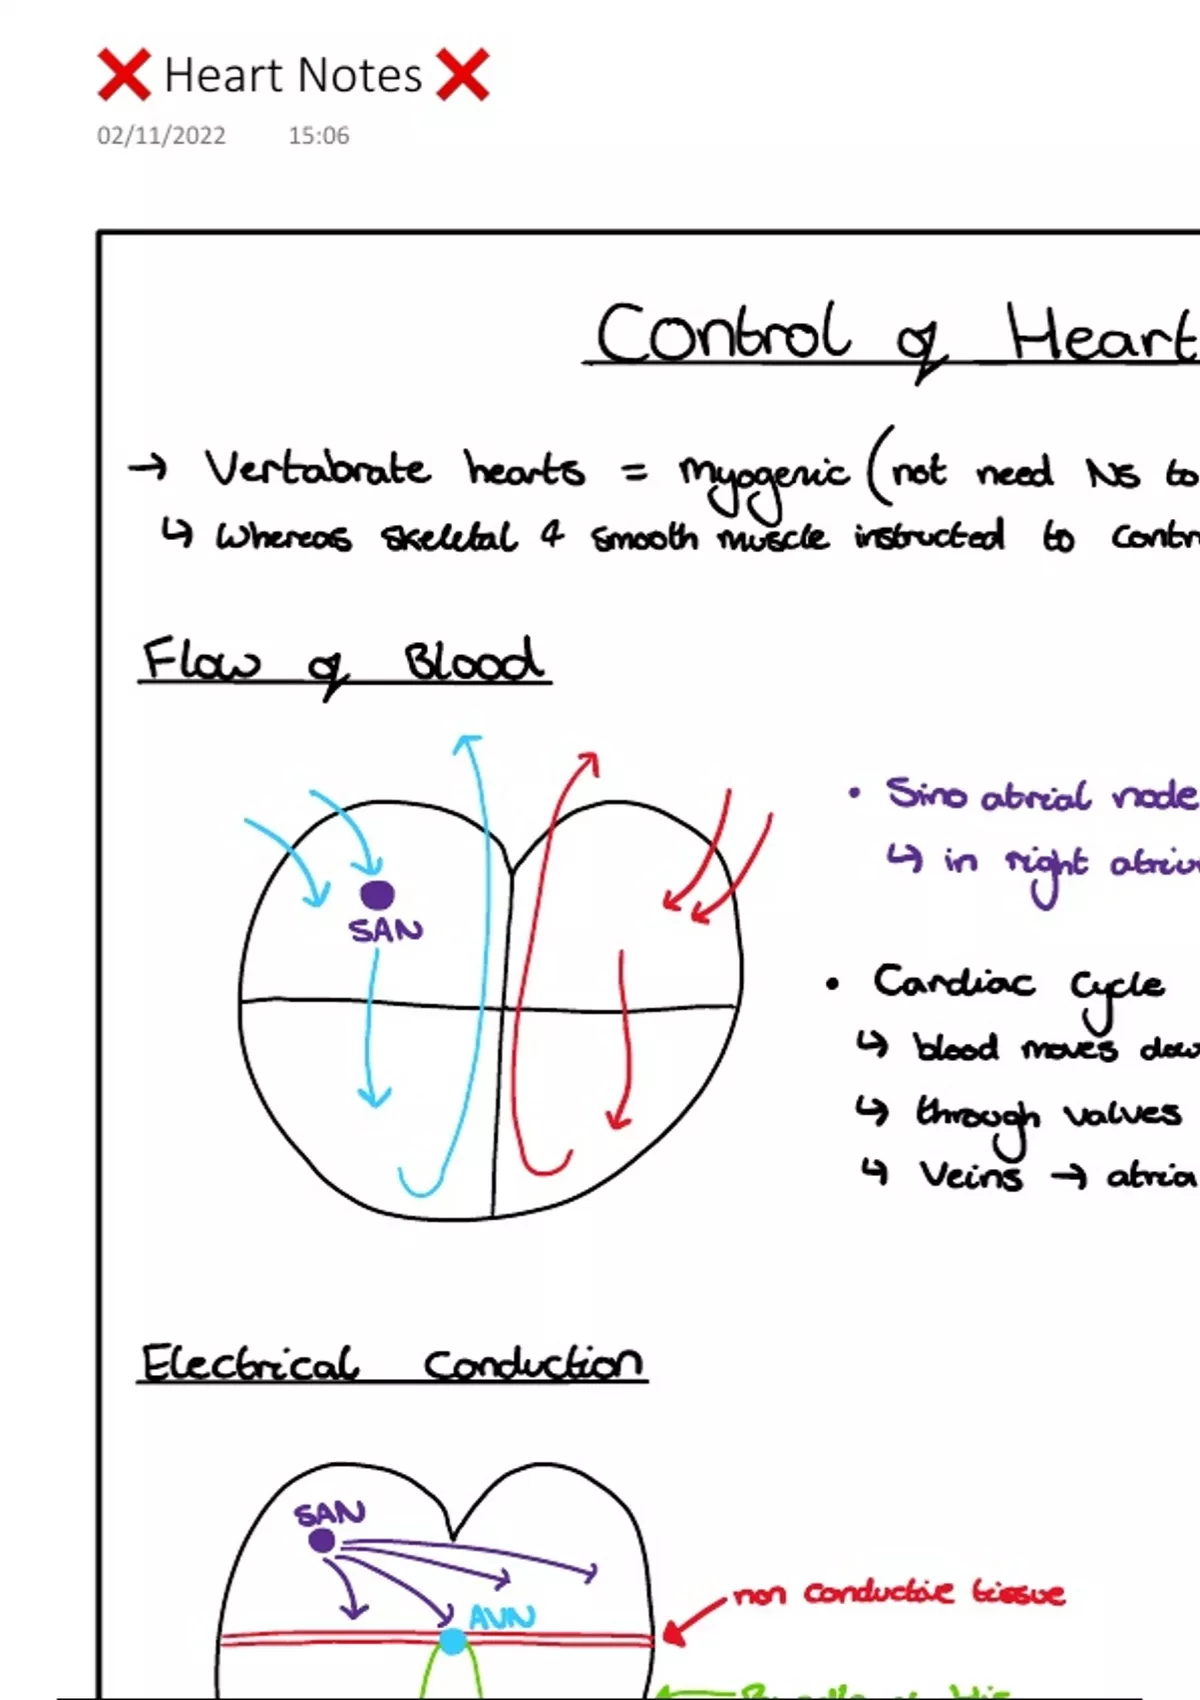 ❌ Heart Notes ❌
02/11/2022 15:06
Control of Heart
→ Vertabrate hearts = myogenic (not need NS to
↳ Whereas skeletal & smooth muscle instructed to contr
Flow of Blood
SAN
• Sino atrial node
↳ in right atriu
• Cardiac Cycle
↳ blood moves dow
↳ through valves
↳ Veins → atria
Electrical Conduction
SAN
AVN
non conductive tissue